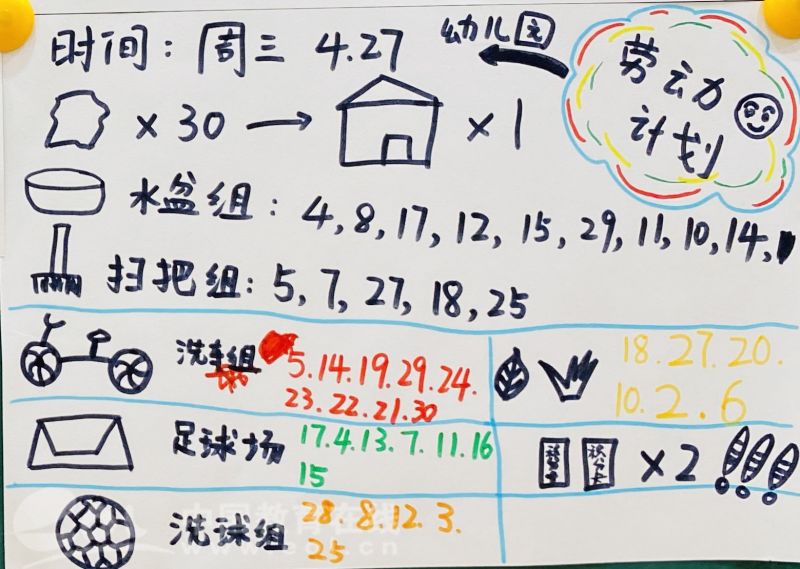 时间：周三 4.27
幼儿园
劳动
计划
×30 → ×1
水盆组：4,8,17,12,15,29,11,10,14,
扫把组：5,7,27,18,25
洗车组 5.14.19.29.24.
23.22.21.30
18.27.20.
10.2.6
足球场 17.4.13.7.11.16
15
×2
洗球组 28.8.12.3.
25
中国教育在线